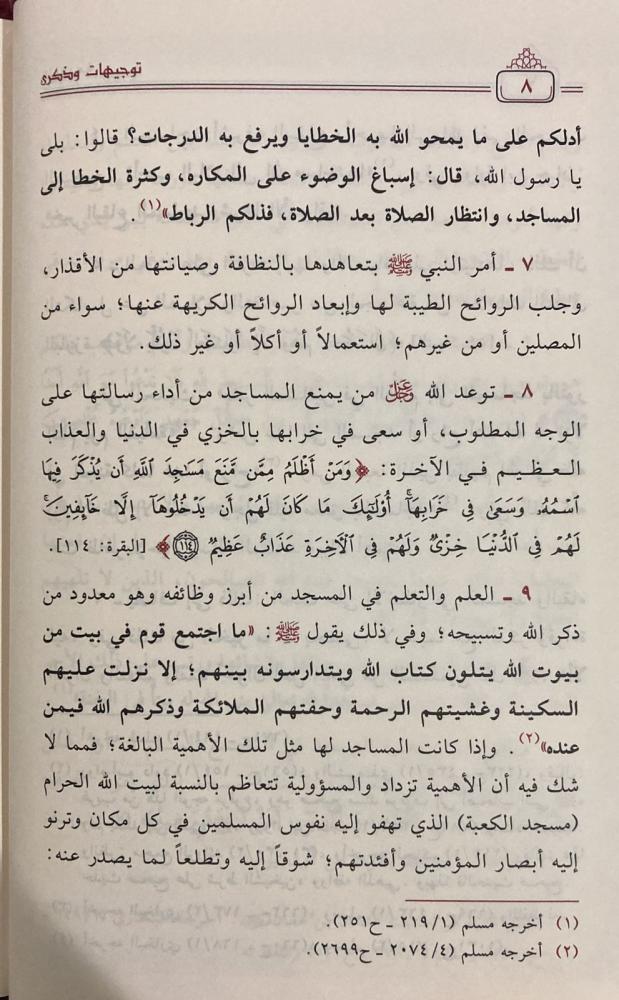 توجيهات وذكرى
٨
أدلكم على ما يمحو الله به الخطايا ويرفع به الدرجات؟ قالوا: بلى
يا رسول الله، قال: إسباغ الوضوء على المكاره، وكثرة الخطا إلى
المساجد، وانتظار الصلاة بعد الصلاة، فذلكم الرباط»(١).
٧ ـ أمر النبي ﷺ بتعاهدها بالنظافة وصيانتها من الأقذار،
وجلب الروائح الطيبة لها وإبعاد الروائح الكريهة عنها؛ سواء من
المصلين أو من غيرهم؛ استعمالاً أو أكلاً أو غير ذلك.
٨ ـ توعد الله عزوجل من يمنع المساجد من أداء رسالتها على
الوجه المطلوب، أو سعى في خرابها بالخزي في الدنيا والعذاب
العظيم في الآخرة: ﴿وَمَنْ أَظْلَمُ مِمَّن مَّنَعَ مَسَٰجِدَ ٱللَّهِ أَن يُذْكَرَ فِيهَا
ٱسْمُهُۥ وَسَعَىٰ فِى خَرَابِهَآ ۚ أُو۟لَٰٓئِكَ مَا كَانَ لَهُمْ أَن يَدْخُلُوهَآ إِلَّا خَآئِفِينَ ۚ
لَهُمْ فِى ٱلدُّنْيَا خِزْىٌ وَلَهُمْ فِى ٱلْءَاخِرَةِ عَذَابٌ عَظِيمٌ ١١٤﴾ [البقرة: ١١٤].
٩ ـ العلم والتعلم في المسجد من أبرز وظائفه وهو معدود من
ذكر الله وتسبيحه؛ وفي ذلك يقول ﷺ: «ما اجتمع قوم في بيت من
بيوت الله يتلون كتاب الله ويتدارسونه بينهم؛ إلا نزلت عليهم
السكينة وغشيتهم الرحمة وحفتهم الملائكة وذكرهم الله فيمن
عنده»(٢). وإذا كانت المساجد لها مثل تلك الأهمية البالغة؛ فمما لا
شك فيه أن الأهمية تزداد والمسؤولية تتعاظم بالنسبة لبيت الله الحرام
(مسجد الكعبة) الذي تهفو إليه نفوس المسلمين في كل مكان وترنو
إليه أبصار المؤمنين وأفئدتهم؛ شوقاً إليه وتطلعاً لما يصدر عنه:
(١) أخرجه مسلم (٢١٩/١ ـ ح٢٥١).
(٢) أخرجه مسلم (٢٠٧٤/٤ ـ ح٢٦٩٩).